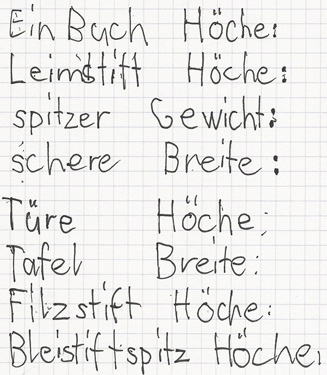 Ein Buch Höche:
Leimstift Höche:
spitzer Gewicht:
schere Breite:
Türe Höche:
Tafel Breite:
Filzstift Höche:
Bleistiftspitz Höche: